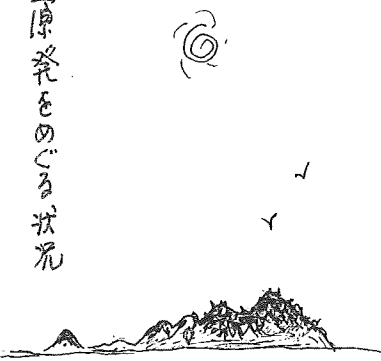 原発をめぐる状況